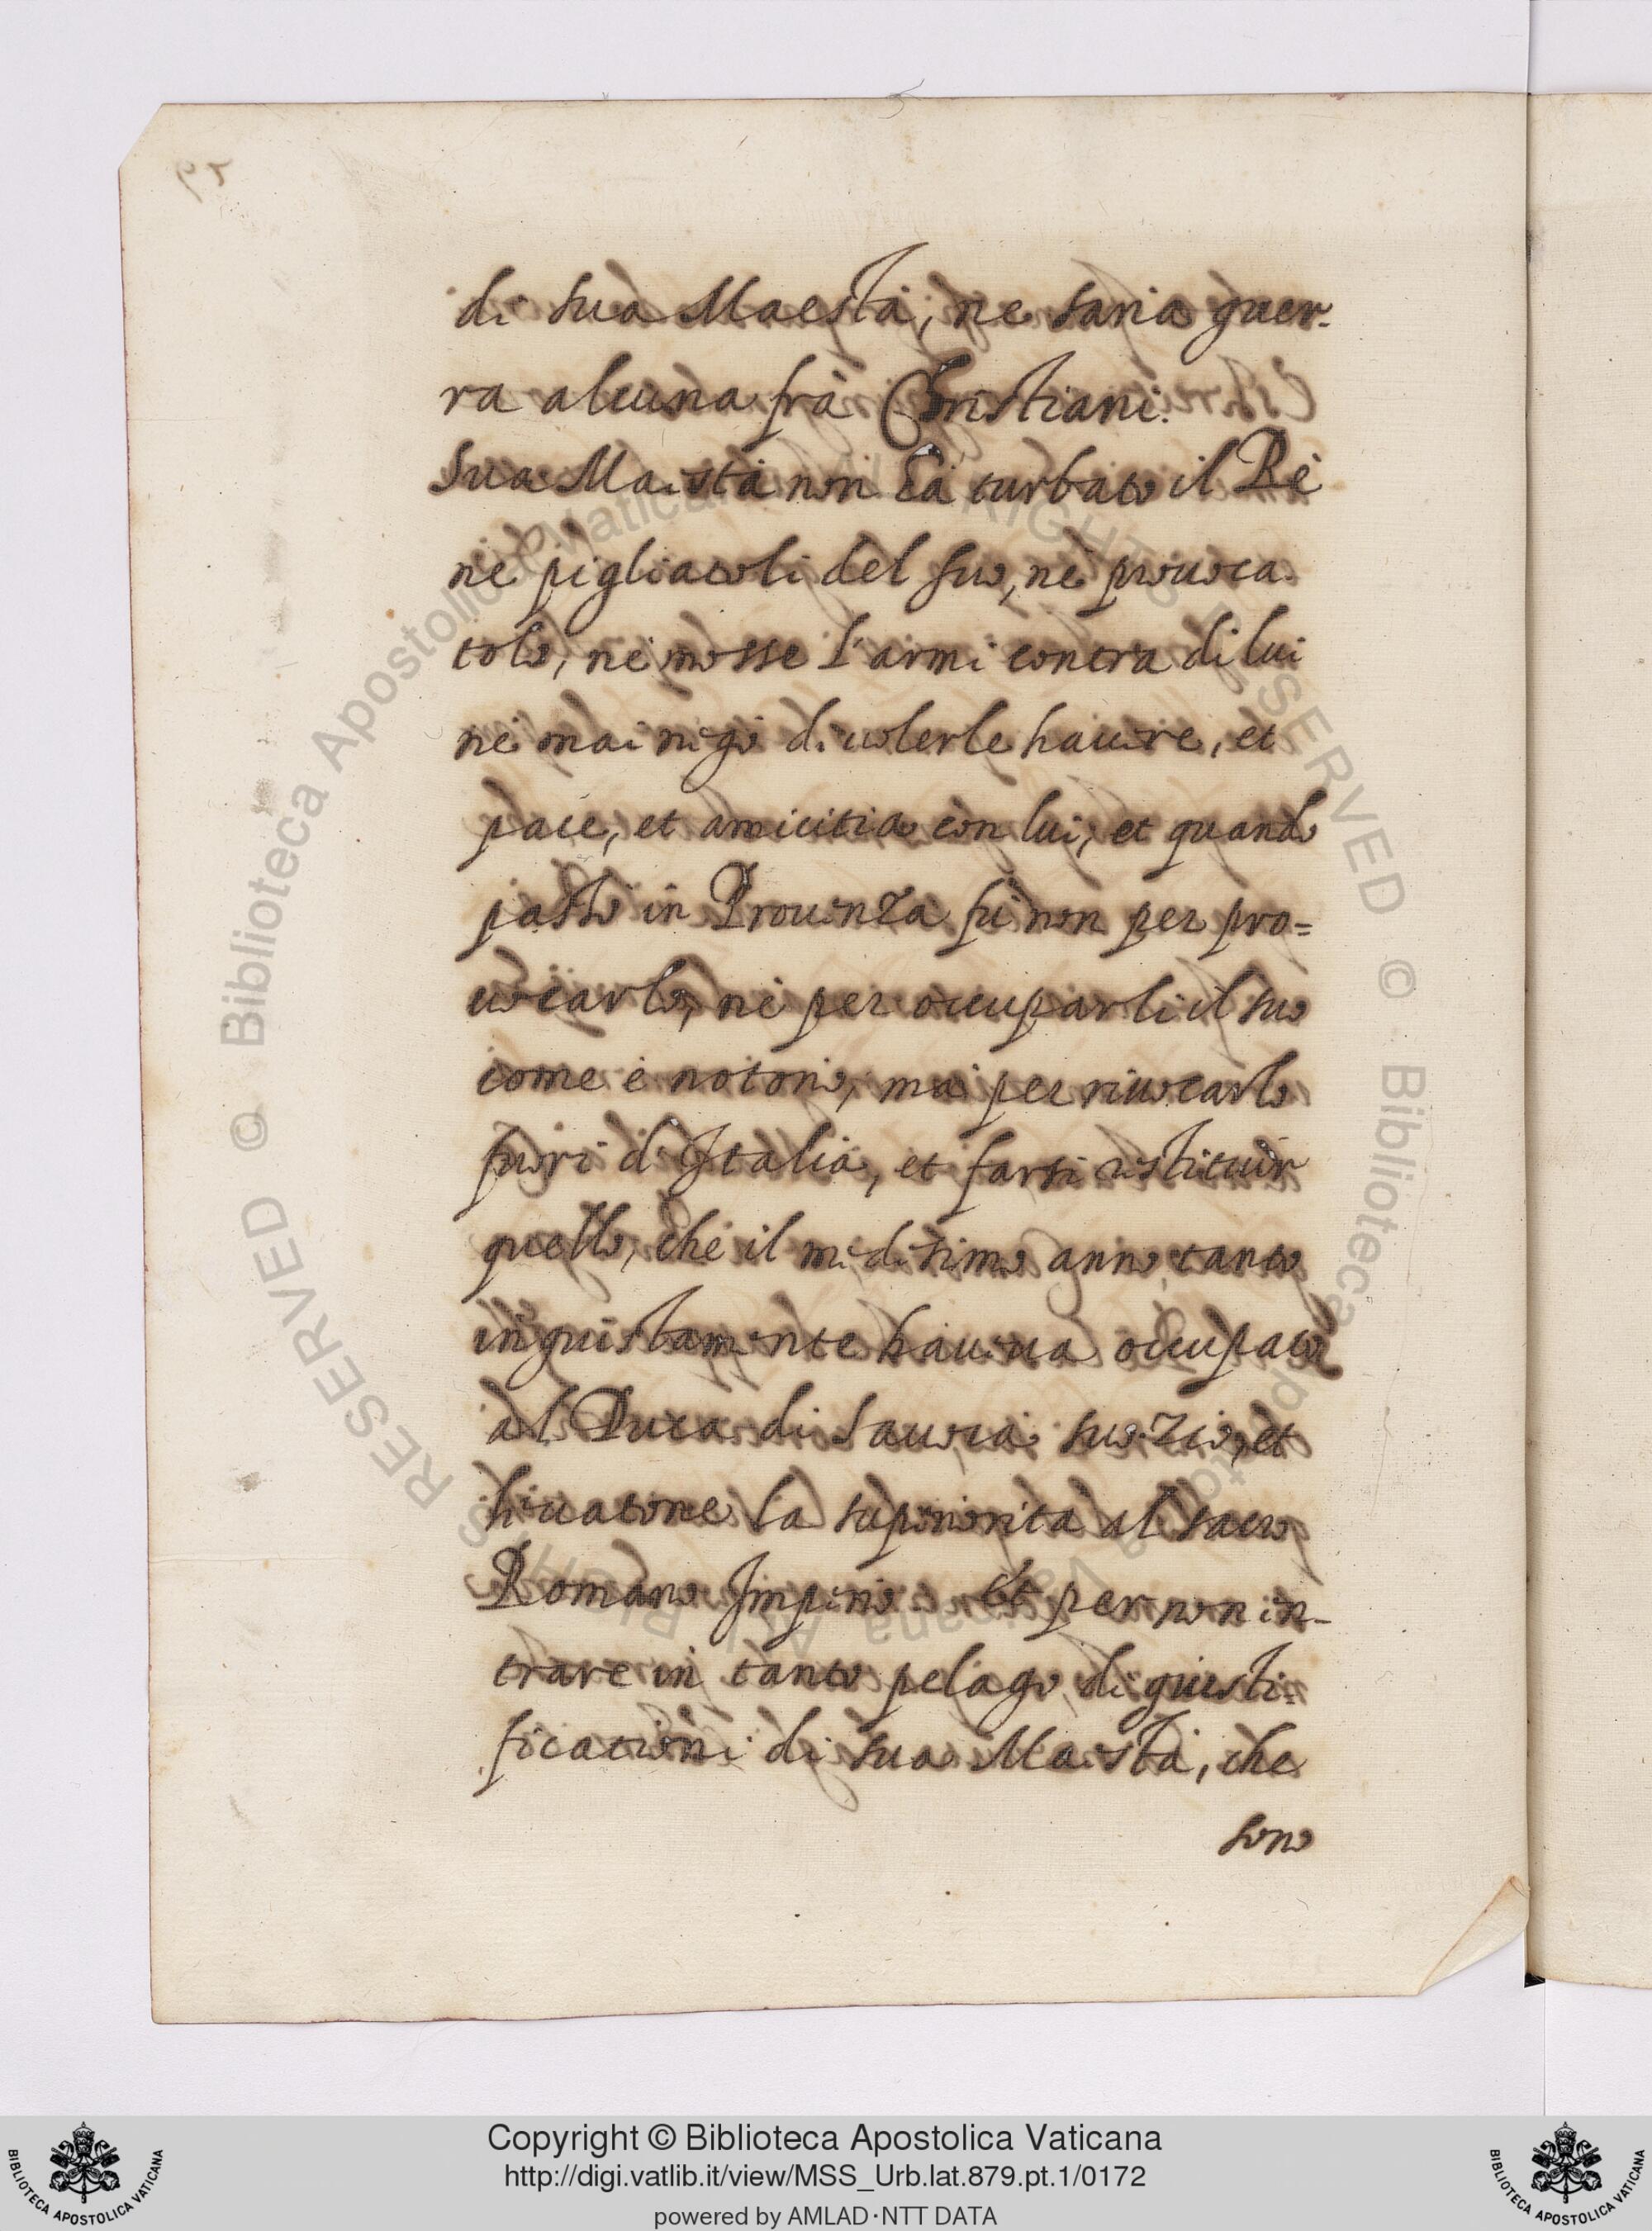 di sua Maestà, ne saria guer-
ra alcuna frà Christiani.
Sua Maestà non hà turbato il Rè
nè pigliatoli del suo, nè prouoca-
tolo, nè mosse l'armi contra di lui
nè mai negò di uolerle hauere, et
pace, et amicitia con lui, et quando
passò in Prouenza fù non per pro=
uocarlo, nè per occuparli il suo
come è notorio, mà per riuocarlo
fuori d'Italia, et farsi restituir
quello, che il medesimo anno tanto
ingiustamente haueua occupato
al Duca di Sauoia suo Zio, et
leuatone la superiorità al sacro
Romano Imperio. Et per non in-
trare in tanto pelago di giusti-
ficationi di sua Maestà, che
sono
Copyright © Biblioteca Apostolica Vaticana
http://digi.vatlib.it/view/MSS_Urb.lat.879.pt.1/0172
powered by AMLAD·NTT DATA
BIBLIOTECA APOSTOLICA VATICANA
BIBLIOTECA APOSTOLICA VATICANA